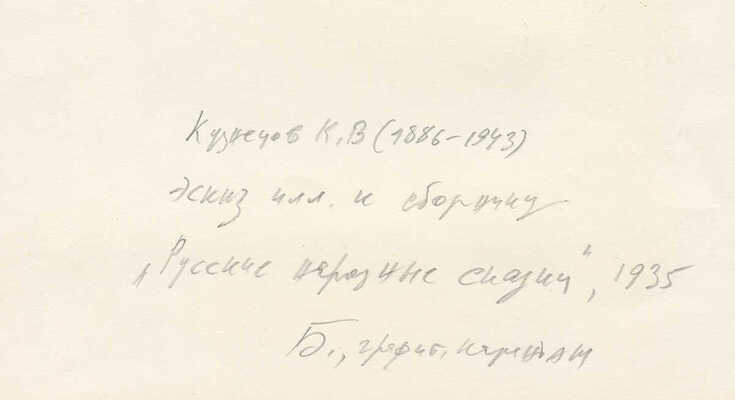 Кузнецов К.В (1886-1943)
Эскиз илл. к сборнику
„Русские народные сказки", 1935
Б., графит. карандаш